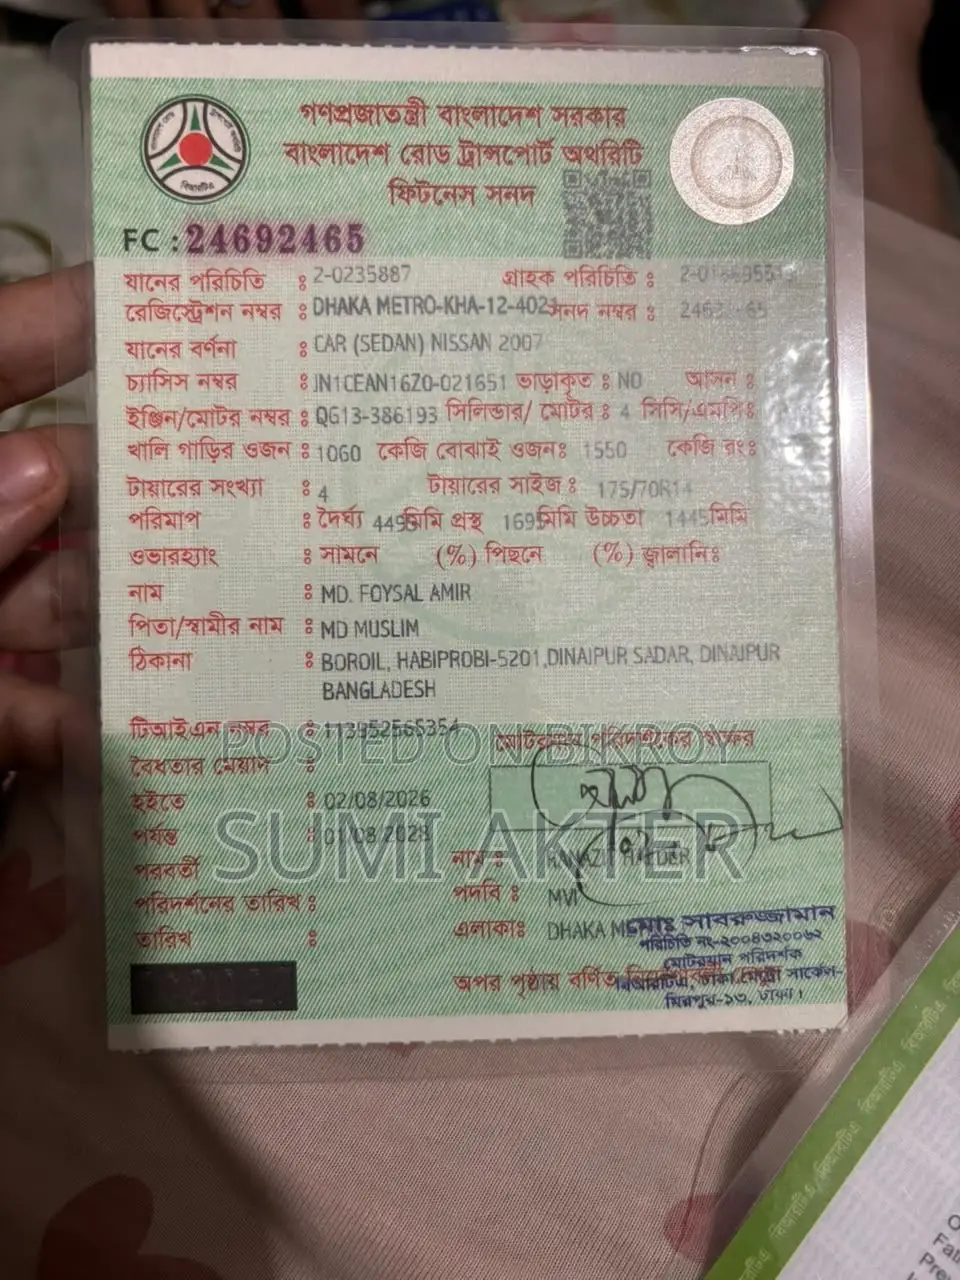 গণপ্রজাতন্ত্রী বাংলাদেশ সরকার
বাংলাদেশ রোড ট্রান্সপোর্ট অথরিটি
ফিটনেস সনদ
বিআরটিএ
FC : 24692465
যানের পরিচিতি : 2-0235887 গ্রাহক পরিচিতি :
রেজিস্ট্রেশন নম্বর : DHAKA METRO-KHA-12-4021 সনদ নম্বর :
যানের বর্ণনা : CAR (SEDAN) NISSAN 2007
চ্যাসিস নম্বর : JN1CEAN16Z0-021651 ভাড়াকৃত : NO আসন :
ইঞ্জিন/মোটর নম্বর : QG13-386193 সিলিন্ডার/ মোটর : 4 সিসি/এমপিঃ
খালি গাড়ির ওজন : 1060 কেজি বোঝাই ওজনঃ 1550 কেজি রং:
টায়ারের সংখ্যা : 4 টায়ারের সাইজ : 175/70R14
পরিমাপ : দৈর্ঘ্য 4495 মিমি প্রস্থ 1695 মিমি উচ্চতা 1445 মিমি
ওভারহ্যাং : সামনে (%) পিছনে (%) জ্বালানিঃ
নাম : MD. FOYSAL AMIR
পিতা/স্বামীর নাম : MD MUSLIM
ঠিকানা : BOROIL, HABIPROBI-5201,DINAJPUR SADAR, DINAJPUR
BANGLADESH
টিআইএন নম্বর : 113952565354
মোটরযান পরিদর্শকের স্বাক্ষর
POSTED ON BIKROY
বৈধতার মেয়াদ :
হইতে : 02/08/2026
পর্যন্ত : 01/08/2028
SUMI AKTER
নাম : HAIDER
পরবর্তী
পরিদর্শনের তারিখ :
পদবি : MVI
তারিখ :
এলাকাঃ DHAKA
মোঃ সাবরুজ্জামান
পরিচিতি নং-২০০৪৩২০০৬২
মোটরযান পরিদর্শক
বিআরটিএ, ঢাকা মেট্রো সার্কেল-
মিরপুর-১৩, ঢাকা।
অপর পৃষ্ঠায় বর্ণিত
বিআরটিএ বিআরটিএ বিআরটিএ বিআরটিএ